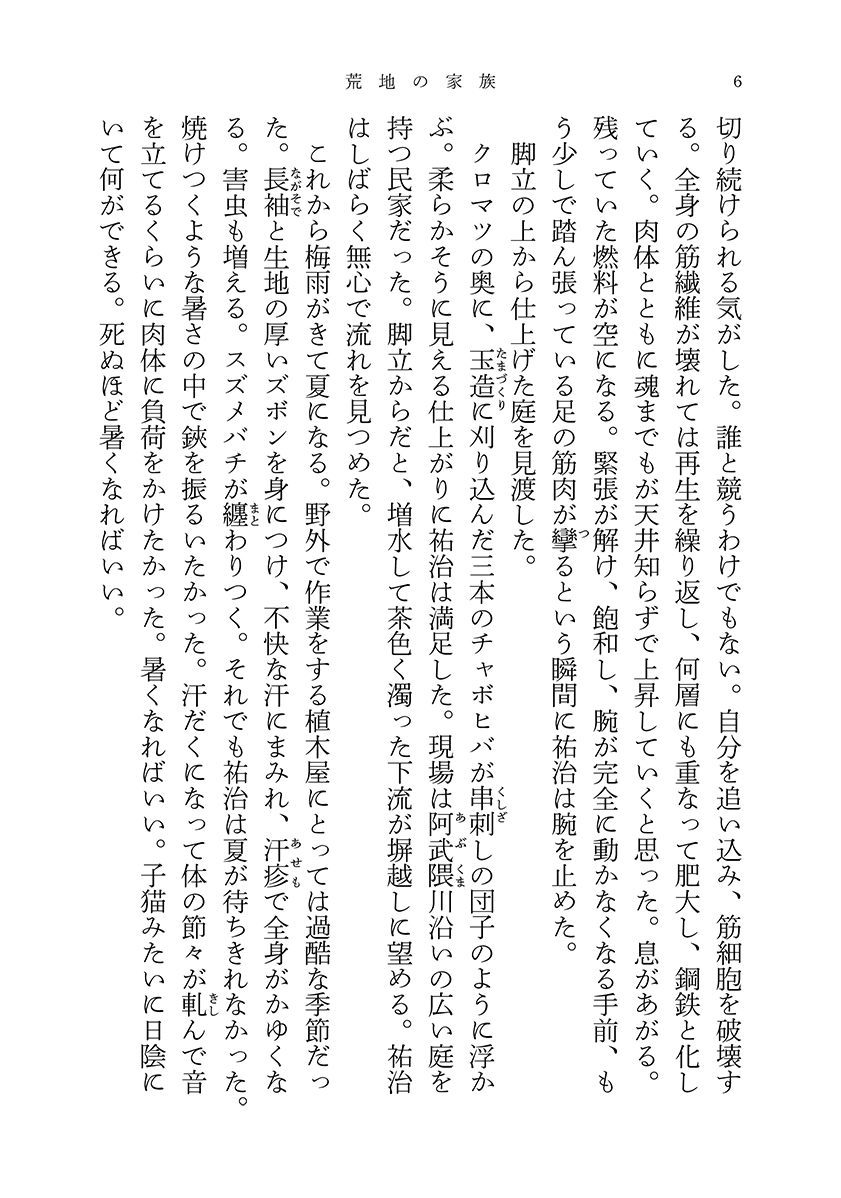 荒地の家族
6
切り続けられる気がした。誰と競うわけでもない。自分を追い込み、筋細胞を破壊す
る。全身の筋繊維が壊れては再生を繰り返し、何層にも重なって肥大し、鋼鉄と化し
ていく。肉体とともに魂までもが天井知らずで上昇していくと思った。息があがる。
残っていた燃料が空になる。緊張が解け、飽和し、腕が完全に動かなくなる手前、も
う少しで踏ん張っている足の筋肉が攣るという瞬間に祐治は腕を止めた。
脚立の上から仕上げた庭を見渡した。
クロマツの奥に、玉造に刈り込んだ三本のチャボヒバが串刺しの団子のように浮か
ぶ。柔らかそうに見える仕上がりに祐治は満足した。現場は阿武隈川沿いの広い庭を
持つ民家だった。脚立からだと、増水して茶色く濁った下流が塀越しに望める。祐治
はしばらく無心で流れを見つめた。
これから梅雨がきて夏になる。野外で作業をする植木屋にとっては過酷な季節だっ
た。長袖と生地の厚いズボンを身につけ、不快な汗にまみれ、汗疹で全身がかゆくな
る。害虫も増える。スズメバチが纏わりつく。それでも祐治は夏が待ちきれなかった。
焼けつくような暑さの中で鋏を振るいたかった。汗だくになって体の節々が軋んで音
を立てるくらいに肉体に負荷をかけたかった。暑くなればいい。子猫みたいに日陰に
いて何ができる。死ぬほど暑くなればいい。